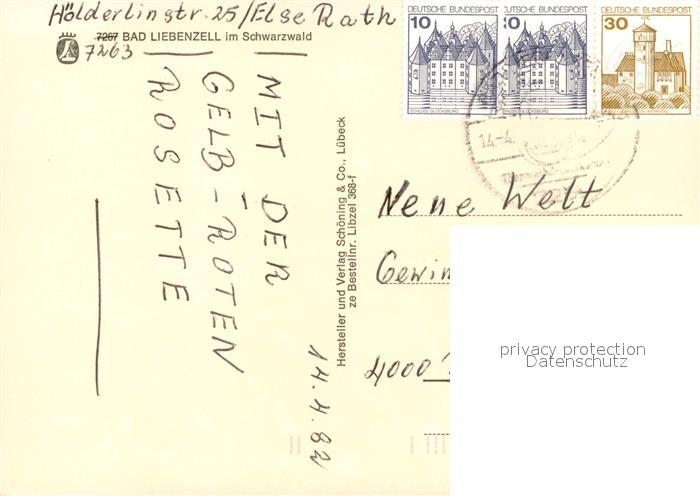 Hölderlinstr. 25/Else Rath
7267 BAD LIEBENZELL im Schwarzwald
7263
MIT DER
GELB-ROTEN
ROSETTE
14.4.82
Hersteller und Verlag Schöning & Co., Lübeck
ze Bestellnr. Libzel 368-f
DEUTSCHE BUNDESPOST
10
SCHLOSS GLÜCKSBURG
DEUTSCHE BUNDESPOST
10
SCHLOSS GLÜCKSBURG
DEUTSCHE BUNDESPOST
30
14.-4.
Neue Welt
Gewin
4000
privacy protection
Datenschutz